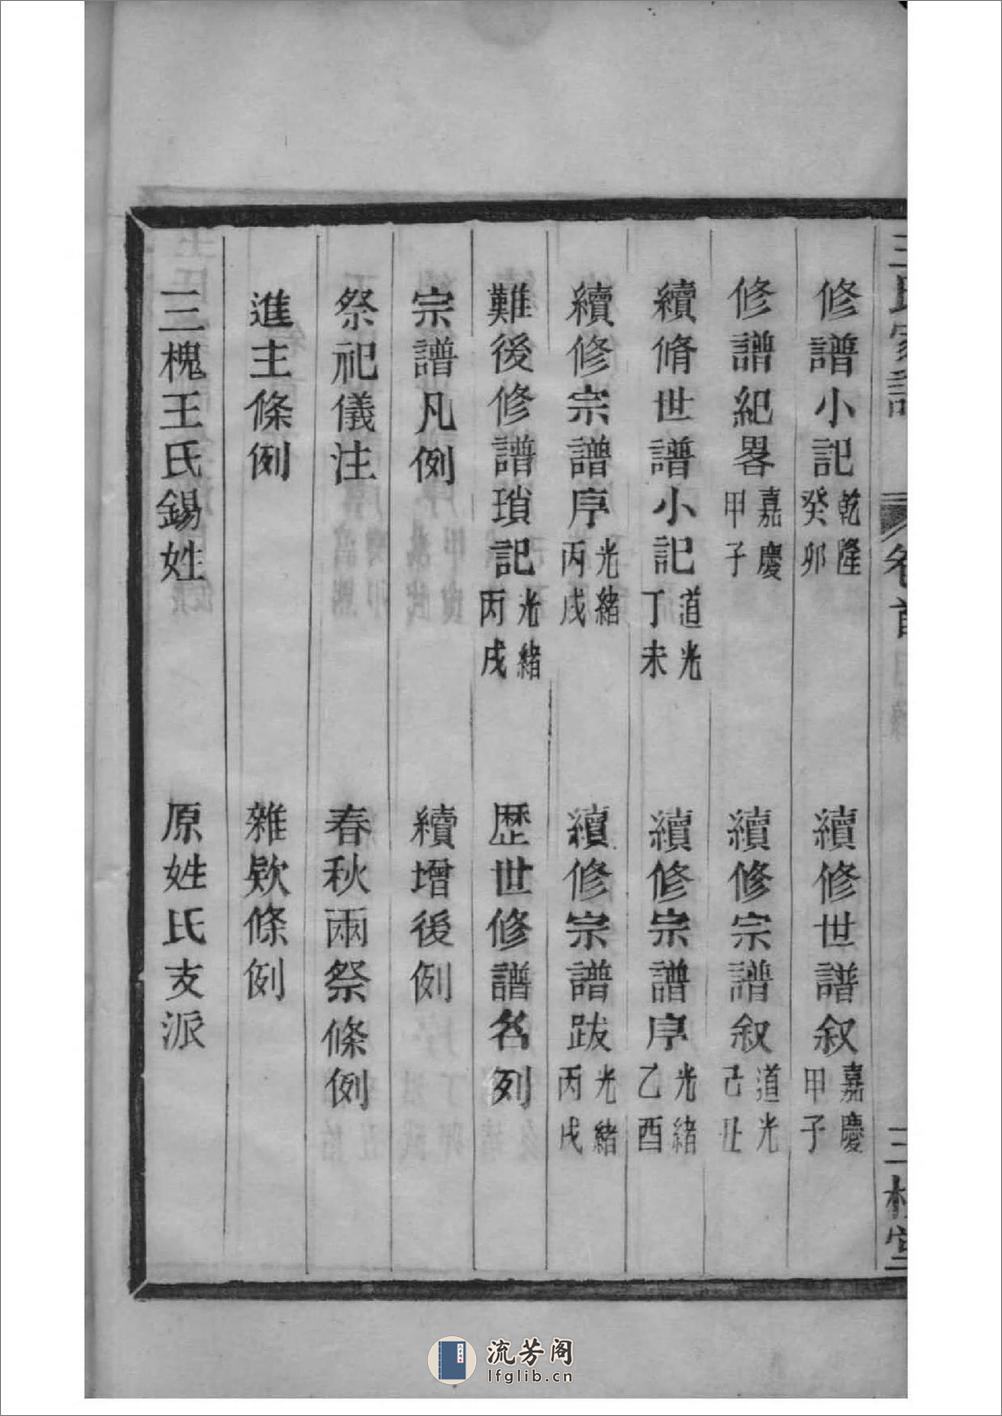 王氏家譜 卷首 目錄 三槐堂
修譜小記 乾隆癸卯 續修世譜叙 嘉慶甲子
修譜紀畧 嘉慶甲子 續修宗譜叙 道光己丑
續脩世譜小記 道光丁未 續修宗譜序 光緒乙酉
續修宗譜序 光緒丙戌 續修宗譜跋 光緒丙戌
難後修譜瑣記 光緒丙戌 歷世修譜名列
宗譜凡例 續增後例
祭祀儀注 春秋兩祭條例
進主條例 雜欵條例
三槐王氏錫姓 原姓氏支派
流芳阁
lfglib.cn